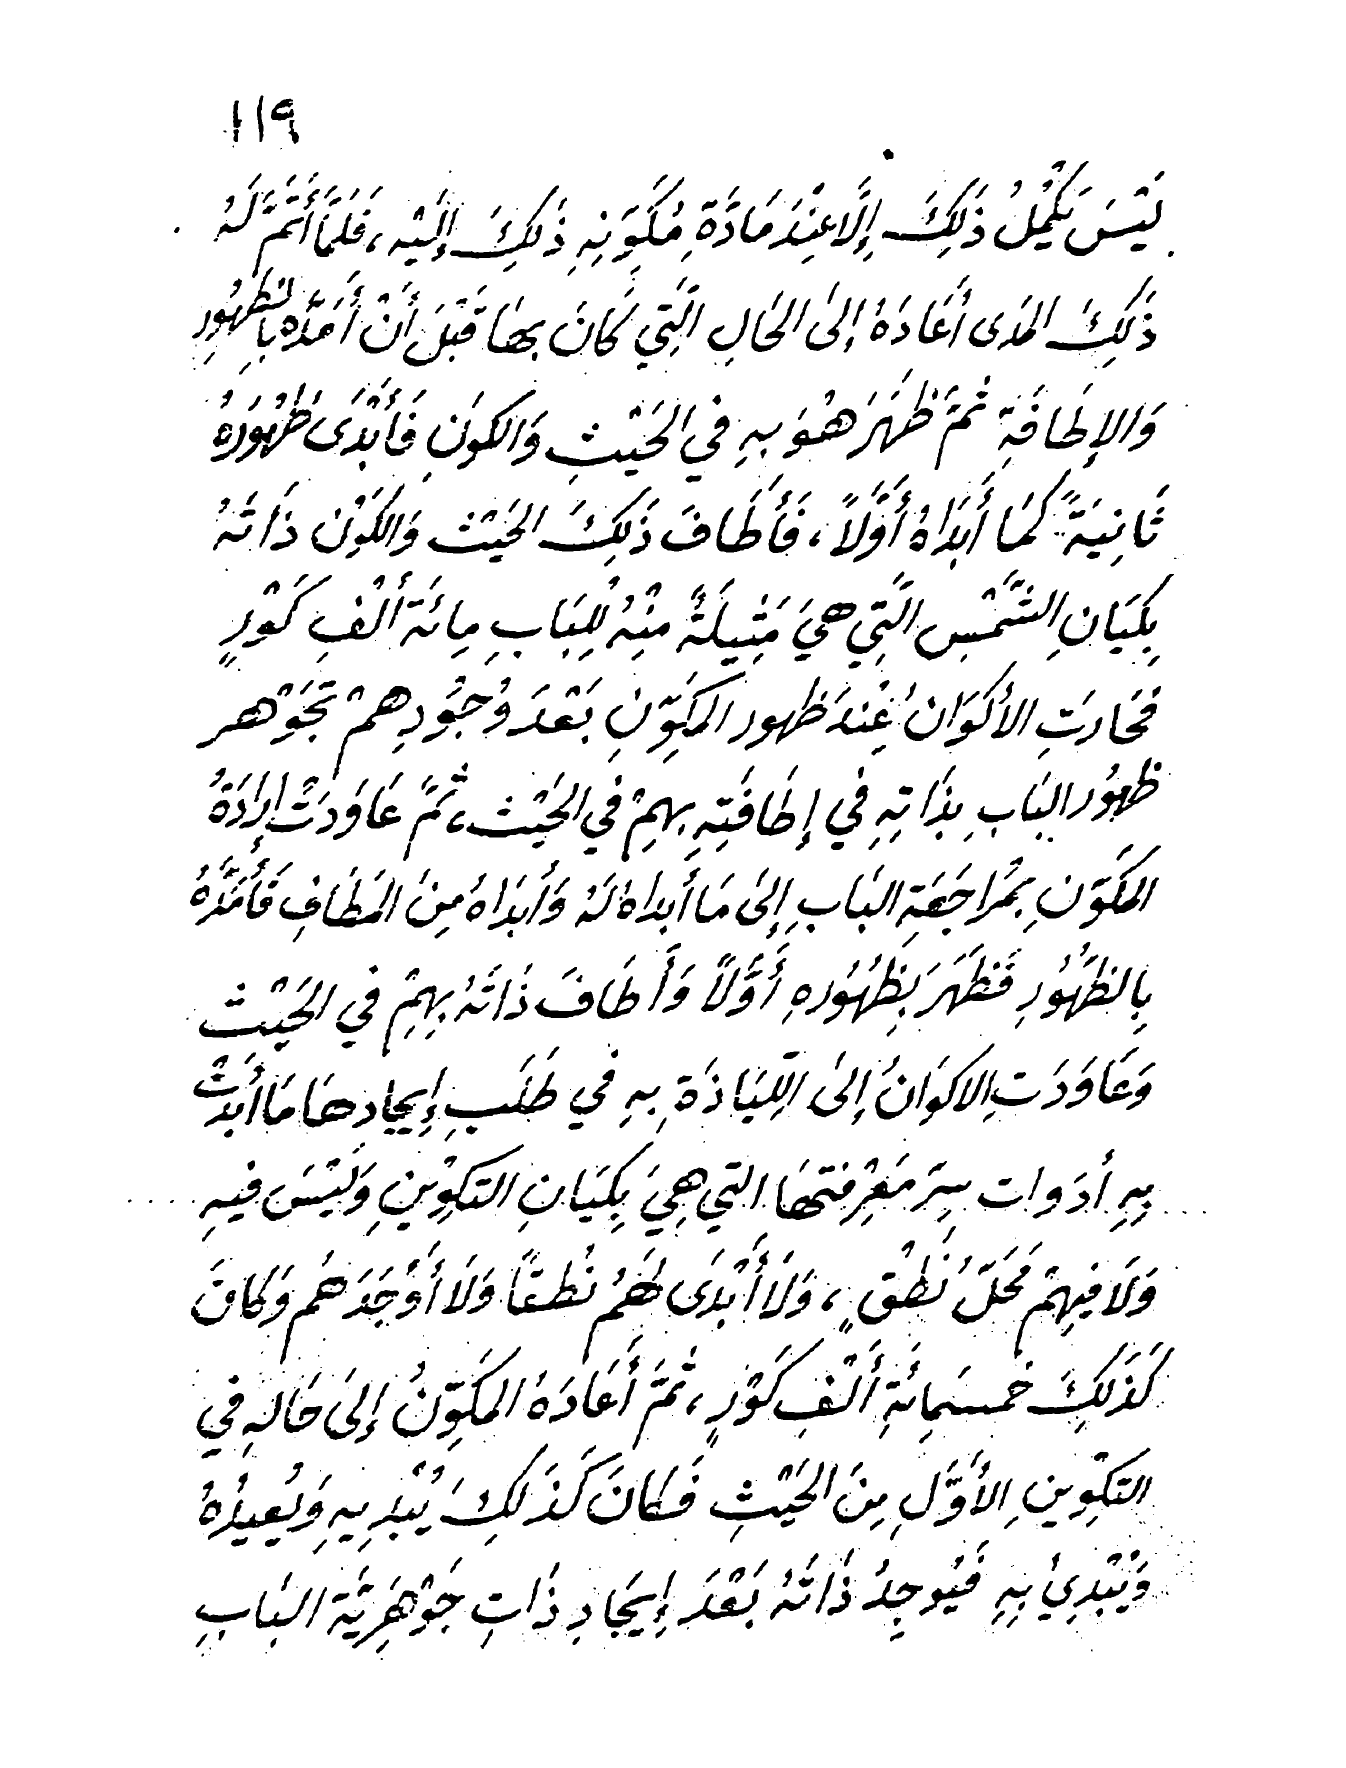 ١١٩
لَيْسَ يَكْمُلُ ذَلِكَ إِلَّا عِنْدَ مَادَّةِ مُكَوِّنِهِ ذَلِكَ إِلَيْهِ، فَلَمَّا أَتَمَّ لَهُ
ذَلِكَ المَدَى أَعَادَهُ إِلَى الحَالِ الَّتِي كَانَ بِهَا قَبْلَ أَنْ أَمَدَّهُ بِالظُهُورِ
وَالإِطَافَةِ ثُمَّ ظَهَرَ هُوَ بِهِ فِي الحَيْثِ وَالكَونِ فَأَبْدَى ظُهُورَهُ
ثَانِيَةً كَمَا أَبَدَاهُ أَوَّلاً، فَأَطَافَ ذَلِكَ الحَيْث وَالكَوْن ذَاتَهُ
بِكَيَانِ الشَّمْسِ الَّتِي هِيَ مَثِيلَةٌ مِنْهُ لِلبَابِ مِائَةَ أَلْفِ كَوْرٍ
فَحَارَتِ الأَكْوَانُ عِنْدَ ظهور المُكَوِّنِ بَعْدَ وُجُودِهِمْ تَجَوْهر
ظهُور البَابِ بِذَاتِهِ فِي إِطَافَتِهِ بِهِمْ فِي الحَيْث، ثُمَّ عَاوَدَتْ إِرَادَةُ
المكَوِّنِ بِمُرَاجَعَةِ البَابِ إِلَى مَا أَبدَاهُ لَهُ وَأَبَدَاهُ مِنَ المَطَافِ فَأَمَدَّهُ
بِالظُهُورِ فَظَهَرَ بِظُهُورِهِ أَوَّلاً وَأَطَافَ ذَاتَهُ بِهِمْ فِي الحَيْث
وَعَاوَدَتِ الاكوَانُ إِلَى اللِّيَاذَةِ بِهِ فِي طَلَبِ إِيجَادِهَا مَا أَبَدْت
بِهِ أَدَوات سِرِّ مَعْرِفَتِهَا التِي هِيَ بِكَيَانِ التكوِيْنِ وَلَيْسَ فِيهِ
وَلَا فِيهِمْ مَحَلّ نُطْقٍ، وَلَا أَبْدَى لَهُمْ نُطقاً وَلَا أَوْجَدَهُم وَكَانَ
كَذَلِكَ خَمسَمِائَةِ أَلْفِ كَوْرٍ، ثُمَّ أَعَادَهُ المكَوِّنُ إِلَى حَالِهِ فِي
التكْوِينِ الأَوَّلِ مِنَ الحَيْثِ فَكَانَ كَذَلِكَ يُبْدِيهِ وَيُعِيدُهُ
وَيُبْدِئُ بِهِ فَيُوجِدُ ذَاتَهُ بَعْدَ إِيجَادِ ذَاتِ جَوْهَرِيَّة البَابِ